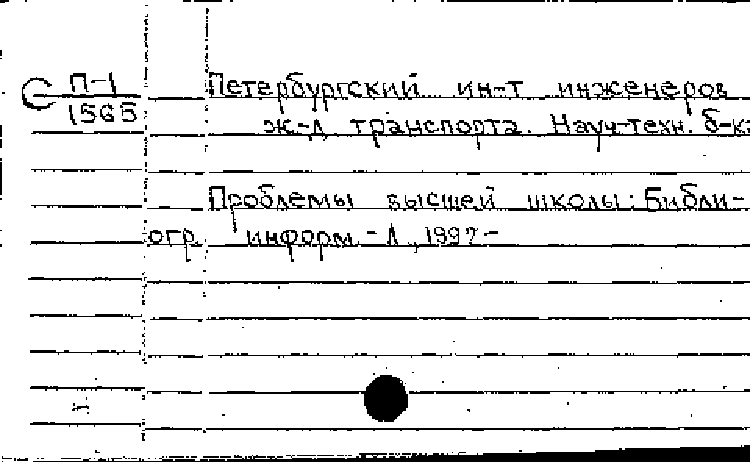 С П-1
1565
Петербургский ин-т инженеров
ж-д транспорта. Науч-техн. б-ка
Проблемы высшей школы: Библи-
огр. информ. - Л., 1992 -